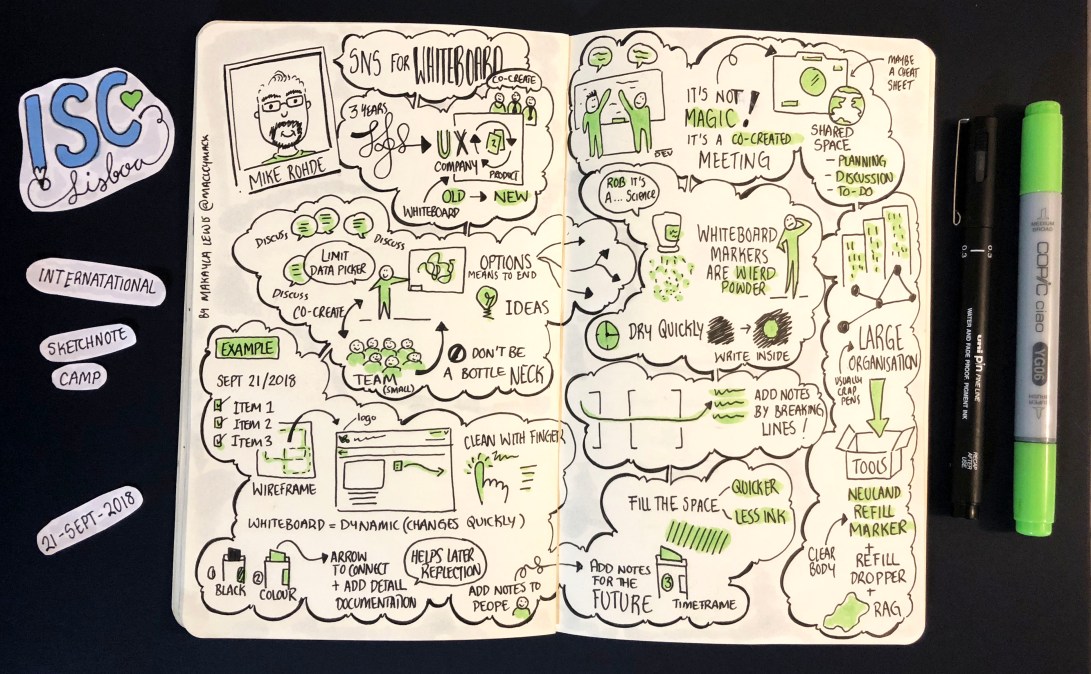 ISC
Lisboa
INTERNATATIONAL
SKETCHNOTE
CAMP
21-SEPT-2018
BY MAKAYLA LEWIS @MACCYMACK
MIKE ROHDE
SNS FOR WHITEBOARD
3 YEARS
CO-CREATE
UX
COMPANY
PRODUCT
WHITEBOARD
OLD → NEW
DISCUSS
DISCUSS
DISCUSS
LIMIT
DATA PICKER
CO-CREATE
OPTIONS
MEANS TO END
IDEAS
TEAM
(SMALL)
DON'T BE
A BOTTLE NECK
EXAMPLE
SEPT 21/2018
ITEM 1
ITEM 2
ITEM 3
WIREFRAME
logo
CLEAN WITH FINGER
WHITEBOARD = DYNAMIC (CHANGES QUICKLY)
①
BLACK
②
COLOUR
ARROW
TO CONNECT
+ ADD DETAIL
DOCUMENTATION
HELPS LATER
REFLECTION
ADD NOTES TO
PEOPE
DEV
IT'S NOT
MAGIC!
IT'S A CO-CREATED
MEETING
MAYBE
A CHEAT
SHEET
SHARED
SPACE
- PLANNING
- DISCUSSION
- TO-DO
ROB IT'S
A... SCIENCE
WHITEBOARD
MARKERS
ARE WIERD
POWDER
DRY QUICKLY
WRITE INSIDE
ADD NOTES
BY BREAKING
LINES!
FILL THE SPACE
QUICKER
LESS INK
ADD NOTES
FOR THE
FUTURE
③
TIMEFRAME
LARGE
ORGANISATION
USUALLY
CRAP
PENS
TOOLS
NEULAND
REFILL
MARKER
CLEAR
BODY
+
REFILL
DROPPER
+
RAG
0.3
0.3
uni pin FINE LINE
WATER AND FADE PROOF, PIGMENT INK
RECAP
AFTER
USE
COPIC
ciao
YG06